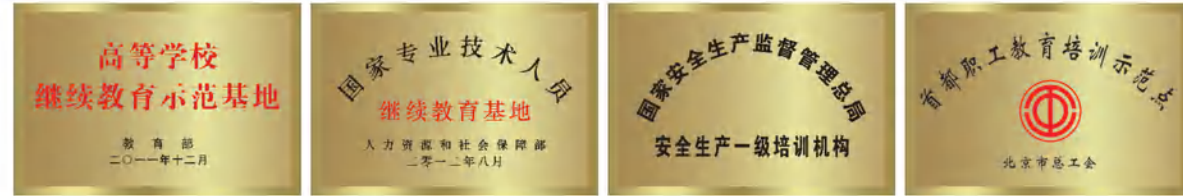 高等学校
继续教育示范基地
教育部
二〇一一年十二月
国家专业技术人员
继续教育基地
人力资源和社会保障部
二零一二年八月
国家安全生产监督管理总局
安全生产一级培训机构
首都职工教育培训示范点
北京市总工会